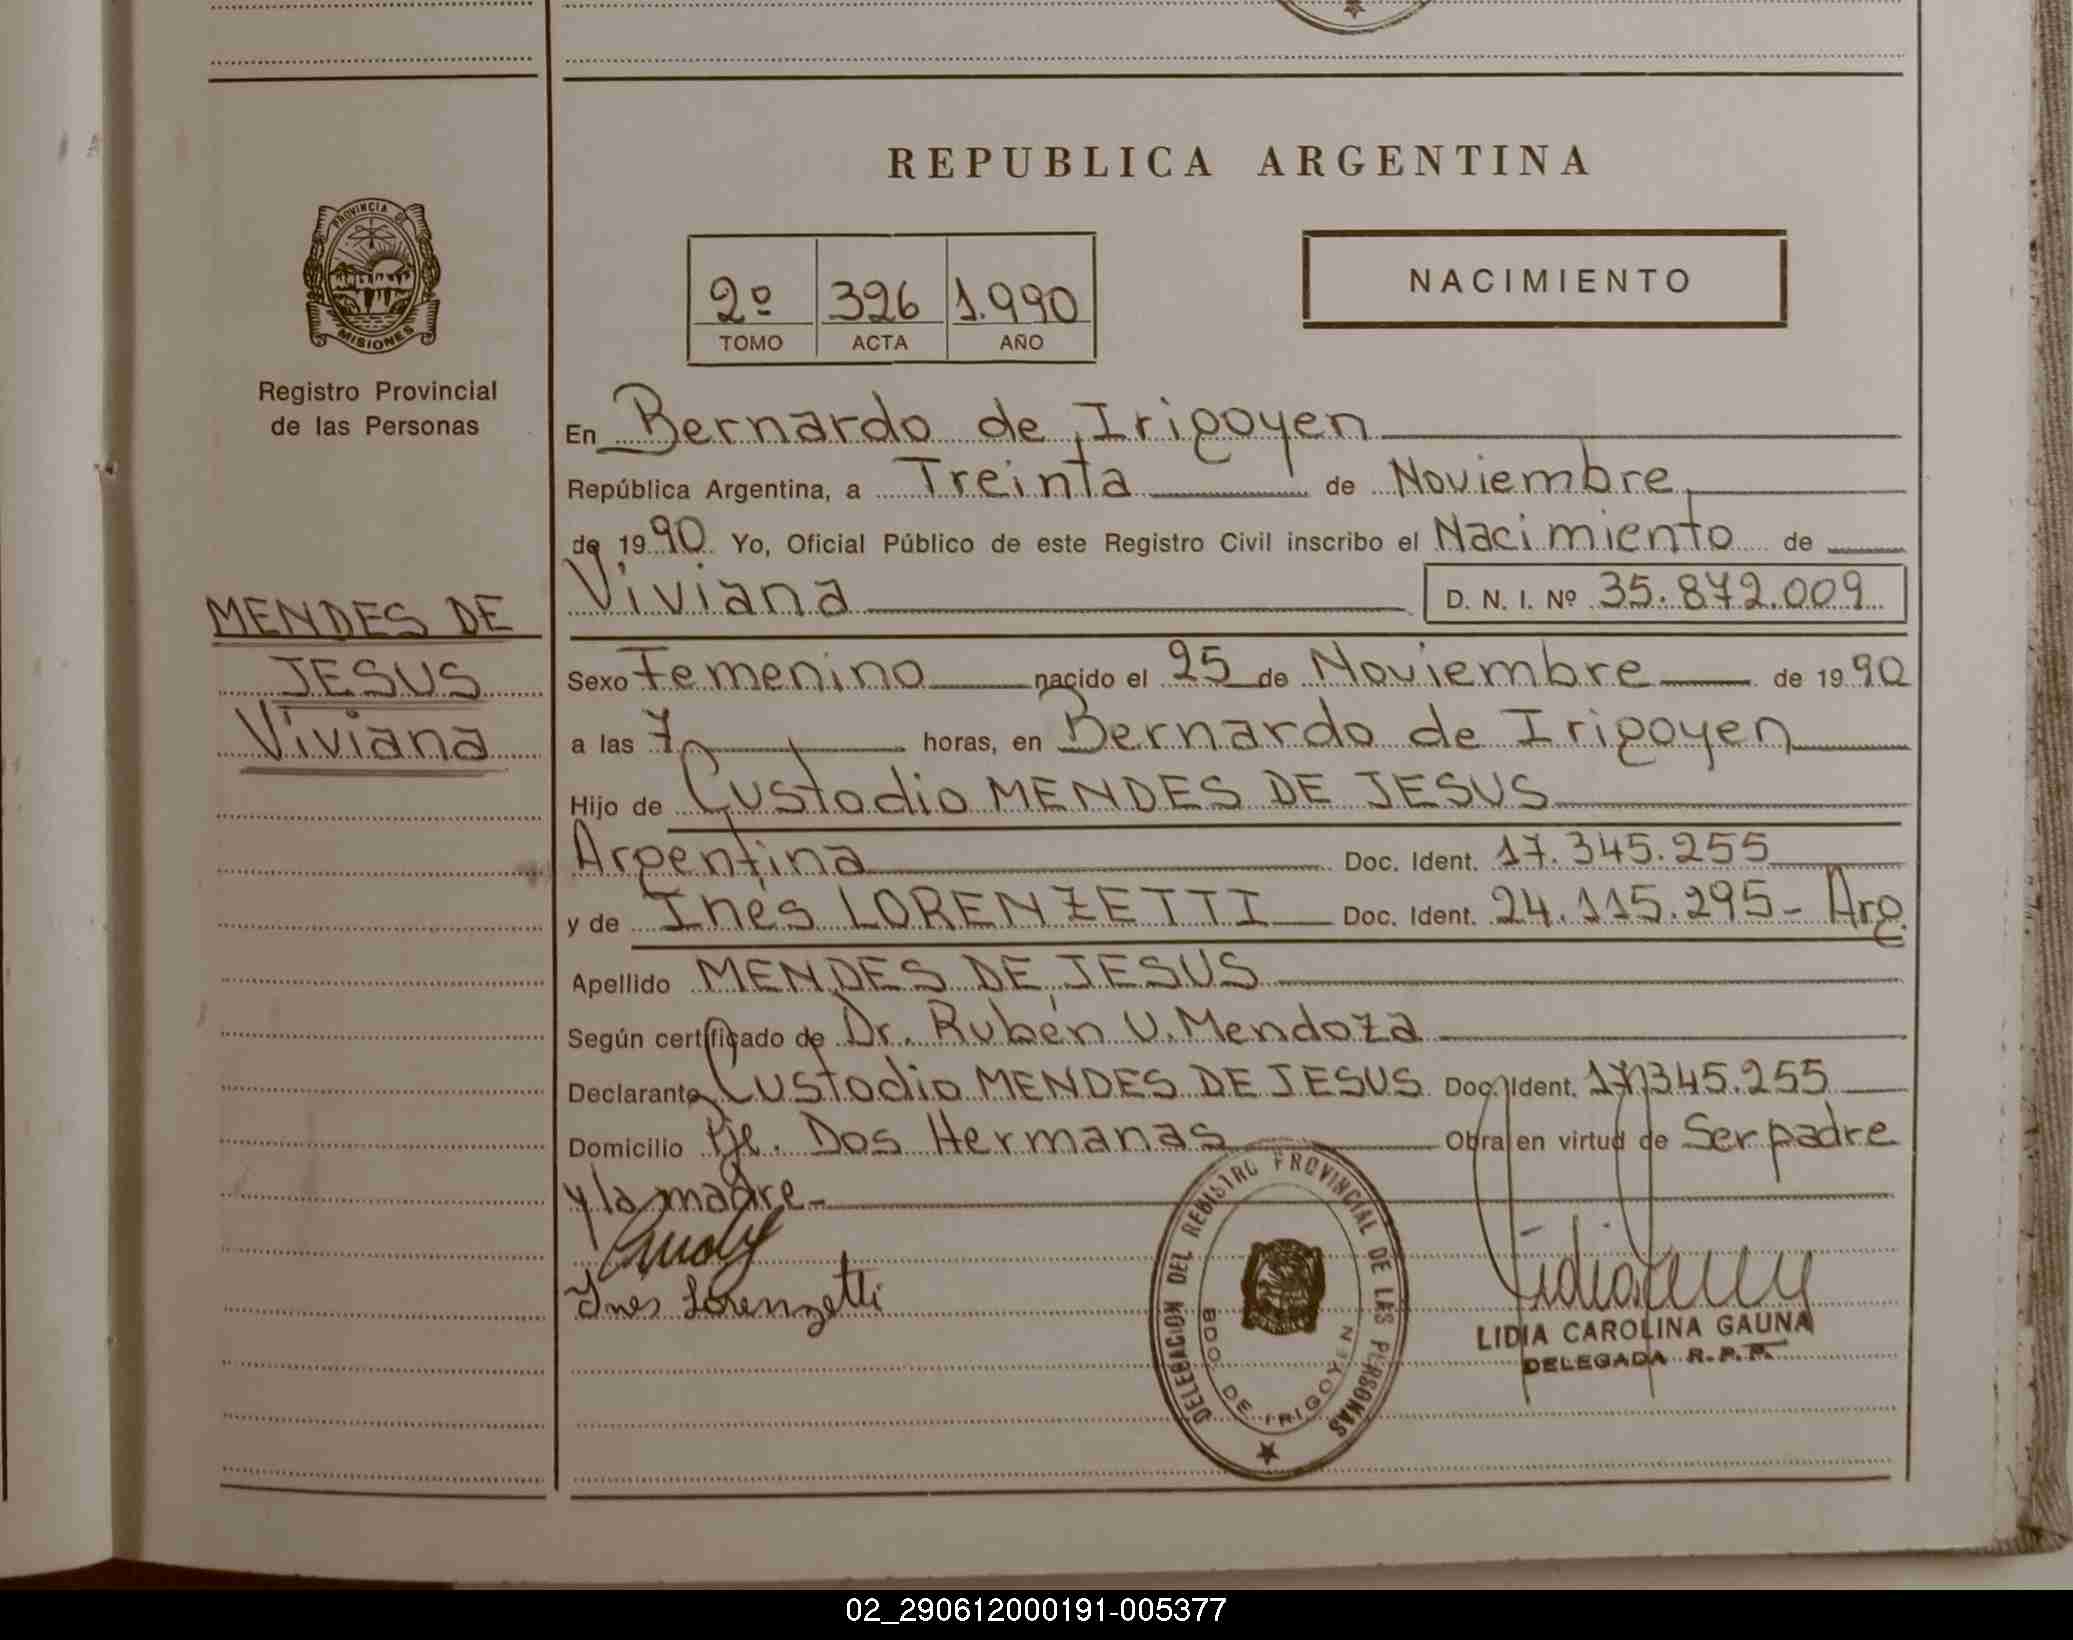 REPUBLICA ARGENTINA
PROVINCIA DE
MISIONES
Registro Provincial
de las Personas
2º 326 1.990
TOMO ACTA AÑO
NACIMIENTO
En Bernardo de Irigoyen
República Argentina, a Treinta de Noviembre
de 1990 Yo, Oficial Público de este Registro Civil inscribo el Nacimiento de
Viviana D. N. I. Nº 35.872.009
MENDES DE
JESUS
Viviana
Sexo Femenino nacido el 25 de Noviembre de 1990
a las 7 horas, en Bernardo de Irigoyen
Hijo de Custodio MENDES DE JESUS
Argentina Doc. Ident. 17.345.255
y de Inés LORENZETTI Doc. Ident. 24.115.295- Arg.
Apellido MENDES DE JESUS
Según certificado de Dr. Rubén V. Mendoza
Declarante Custodio MENDES DE JESUS Doc. Ident. 17.345.255
Domicilio Pje. Dos Hermanas Obra en virtud de Ser padre
y la madre-
Ines Lorenzetti
DELEGACION DEL REGISTRO PROVINCIAL DE LAS PERSONAS
BDO. DE IRIGOYEN
LIDIA CAROLINA GAUNA
DELEGADA R.P.P.
02_290612000191-005377